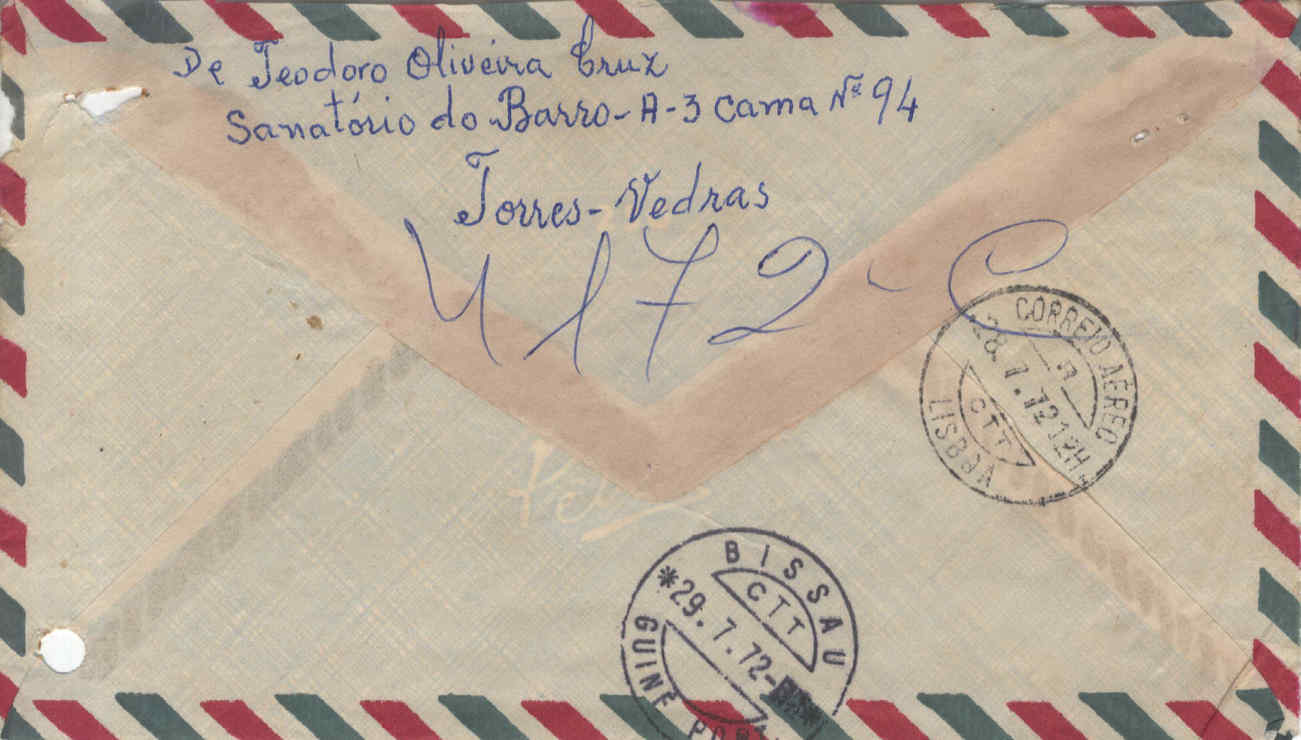 De Teodoro Oliveira Cruz
Sanatório do Barro-A-3 Cama Nº 94
Torres-Vedras
4172-C
CORREIO AÉREO
28.7.72 12H
CTT
LISBOA
BISSAU
CTT
*29.7.72-
GUINÉ PORT